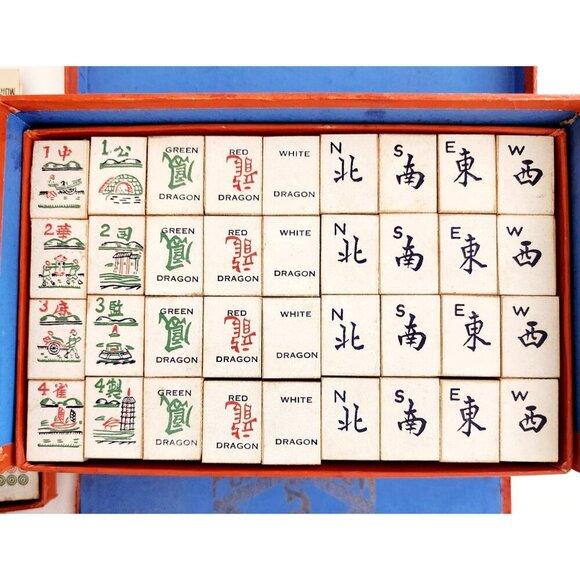 1 中
1 公
GREEN
DRAGON
RED
龍
DRAGON
WHITE
DRAGON
N
北
S
南
E
東
W
西
2 華
2 司
GREEN
DRAGON
RED
龍
DRAGON
WHITE
DRAGON
N
北
S
南
E
東
W
西
3 麻
3 監
GREEN
DRAGON
RED
龍
DRAGON
WHITE
DRAGON
N
北
S
南
E
東
W
西
4 雀
4 製
GREEN
DRAGON
RED
龍
DRAGON
WHITE
DRAGON
N
北
S
南
E
東
W
西